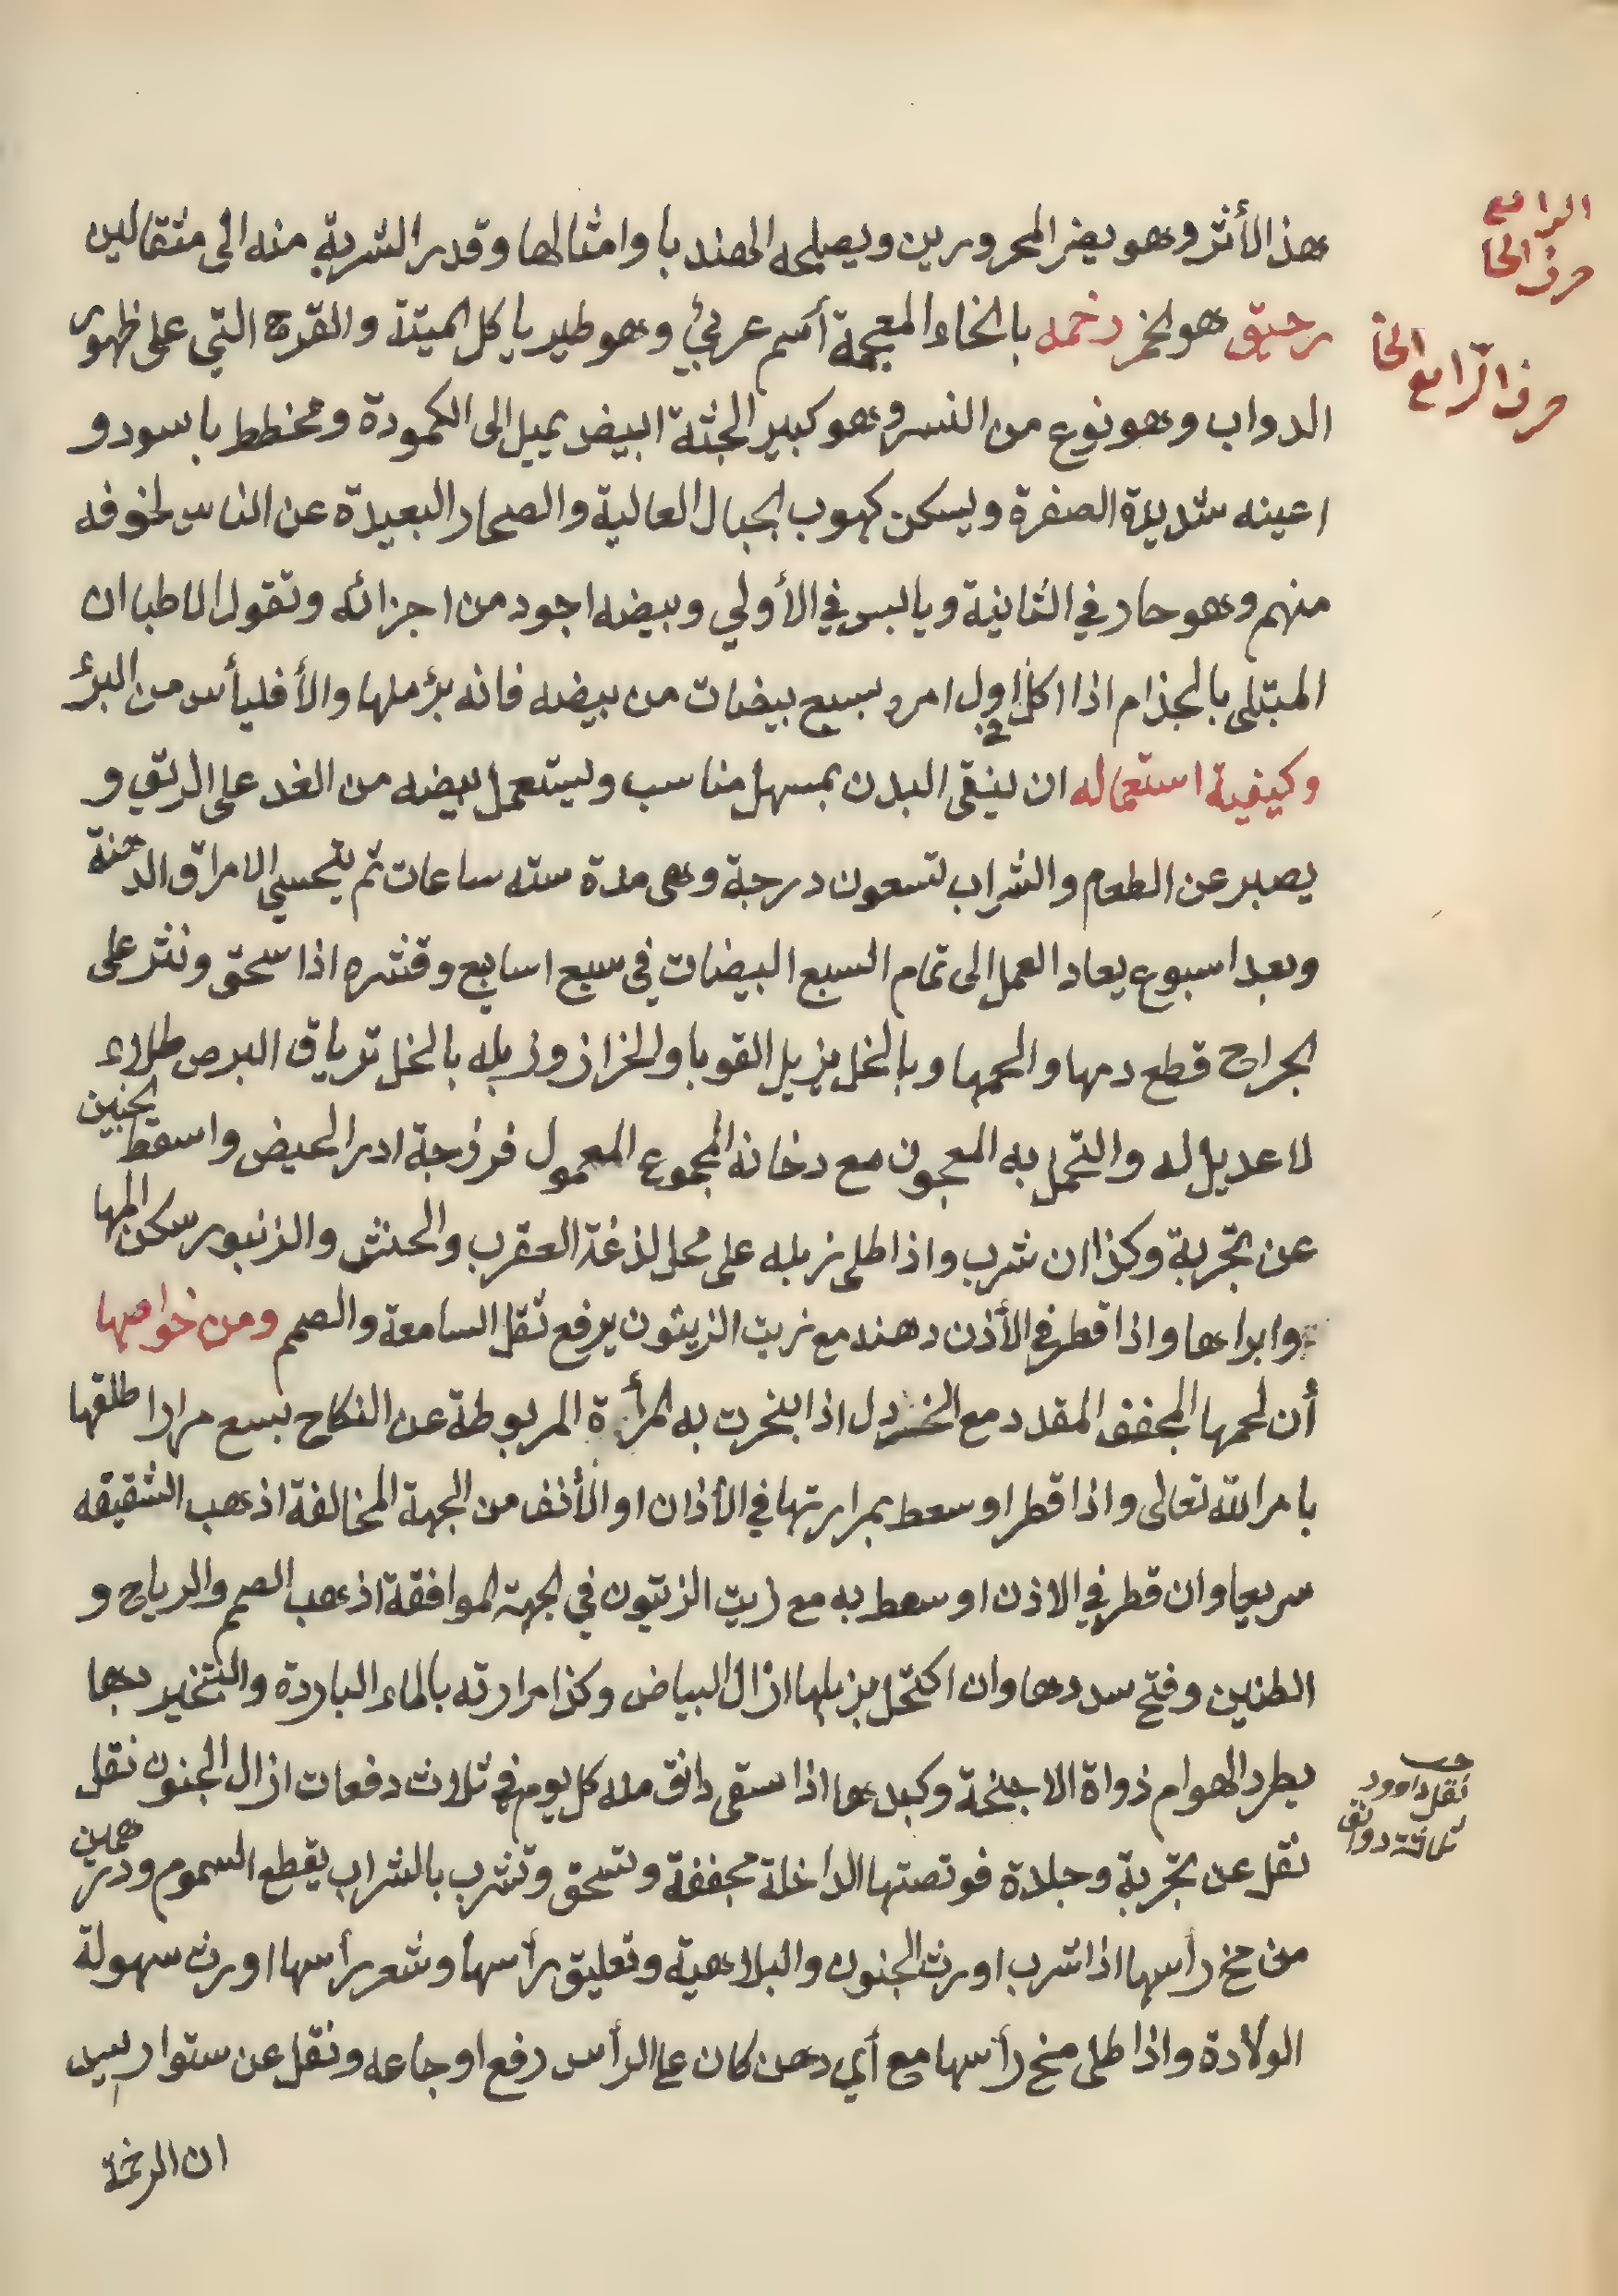 هذا الأثر وهو يضر المحرورين ويصلحه الهندبا وامثالها وقدر الشربة منه الى مثقالين
رحيق هو الخمر رخمه بالخاء المعجمة أسم عربيّ وهو طير ياكل الميتة والقرحة التي على ظهور
الدواب وهو نوع من النسر وهو كبير الجثة ابيض يميل الى الكمودة ومخطط باسود و
اعينه شديدة الصفرة ويسكن كهوب الجبال العالية والصحار البعيدة عن الناس لخوفه
منهم وهو حار في الثانية ويابس في الأولي وبيضه اجود من اجزائه وتقول الاطبا ان
المبتلى بالجذام اذا اكل في اول امره سبع بيضات من بيضه فانه برؤ منها والأ فليأس من البرؤ
وكيفية استعماله ان ينقى البدن بمسهل مناسب ويستعمل بيضه من الغد على الريق و
يصبر عن الطعام والشراب تسعون درجة وهى مدة سته ساعات ثم يتحسي الامراق الدهنة
وبعد اسبوع يعاد العمل الى تمام السبع البيضات في سبع اسابيع وقشره اذا سحق ونثر على
الجراح قطع دمها والحمها وبالخل يزيل القوبا والخزاز وزبله بالخل ترياق البرص طلاء
لا عديل له والتحمل به المعجون مع دخانه المجموع المعمول فرزجة ادر الحيض واسقط الجنين
عن تجربة وكذا ان شرب واذا طلى زبله على محل لذغة العقرب والحنش والزنبور سكن المها
وابراها واذا قطر في الأذن دهنه مع زيت الزيتون يرفع ثقل السامعة والصمم ومن خواصها
أن لحمها المجفف المقدد مع الخردل اذا بتخرت به المرأة المربوطة عن النكاح بسبع مرار اطلقها
بامر الله تعالى واذا قطر او سعط بمرارتها في الأذان او الأنف من الجهة المخالفة اذهب الشقيقه
سريعا وان قطر في الاذن او سعط به مع زيت الزيتون في الجهة الموافقة اذهب الصمم والرياح و
الطنين وفتح سددها وان اكتحل بزبلها ازال البياض وكذا مرارته بالماء الباردة والتبخير بها
يطرد الهوام ذواة الاجنحة وكبدها اذا سقى دانق منه كل يوم في ثلاث دفعات ازال الجنون نقل
نقل عن تجربة وجلدة قونصتها الداخلة مجففة وتسحق وتشرب بالشراب يقطع السموم ودرهمين
من مخ رأسها اذا شرب اورث الجنون والبلاهية وتعليق رأسها وشعر رأسها اورث سهولة
الولادة واذا طلى مخ رأسها مع أي دهن كان على الرأس رفع اوجاعه ونقل عن
ان الرخمة
الرا مع
حرف الحا
حرف الرّا مع الخا
نقل داوود
ثلاثة دوانق